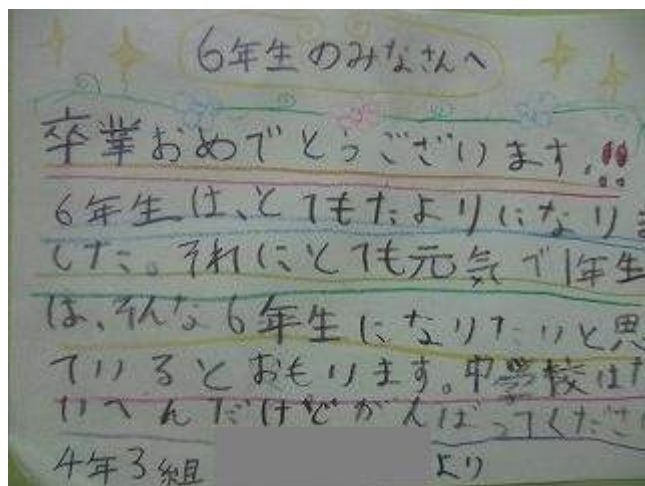 6年生のみなさんへ
卒業おめでとうございます。!!
6年生は、とてもたよりになりま
した。それにとても元気で1年生
は、そんな6年生になりたいと思
ているとおもります。中学校はた
いへんだけどがんばってくださ
4年3組 より